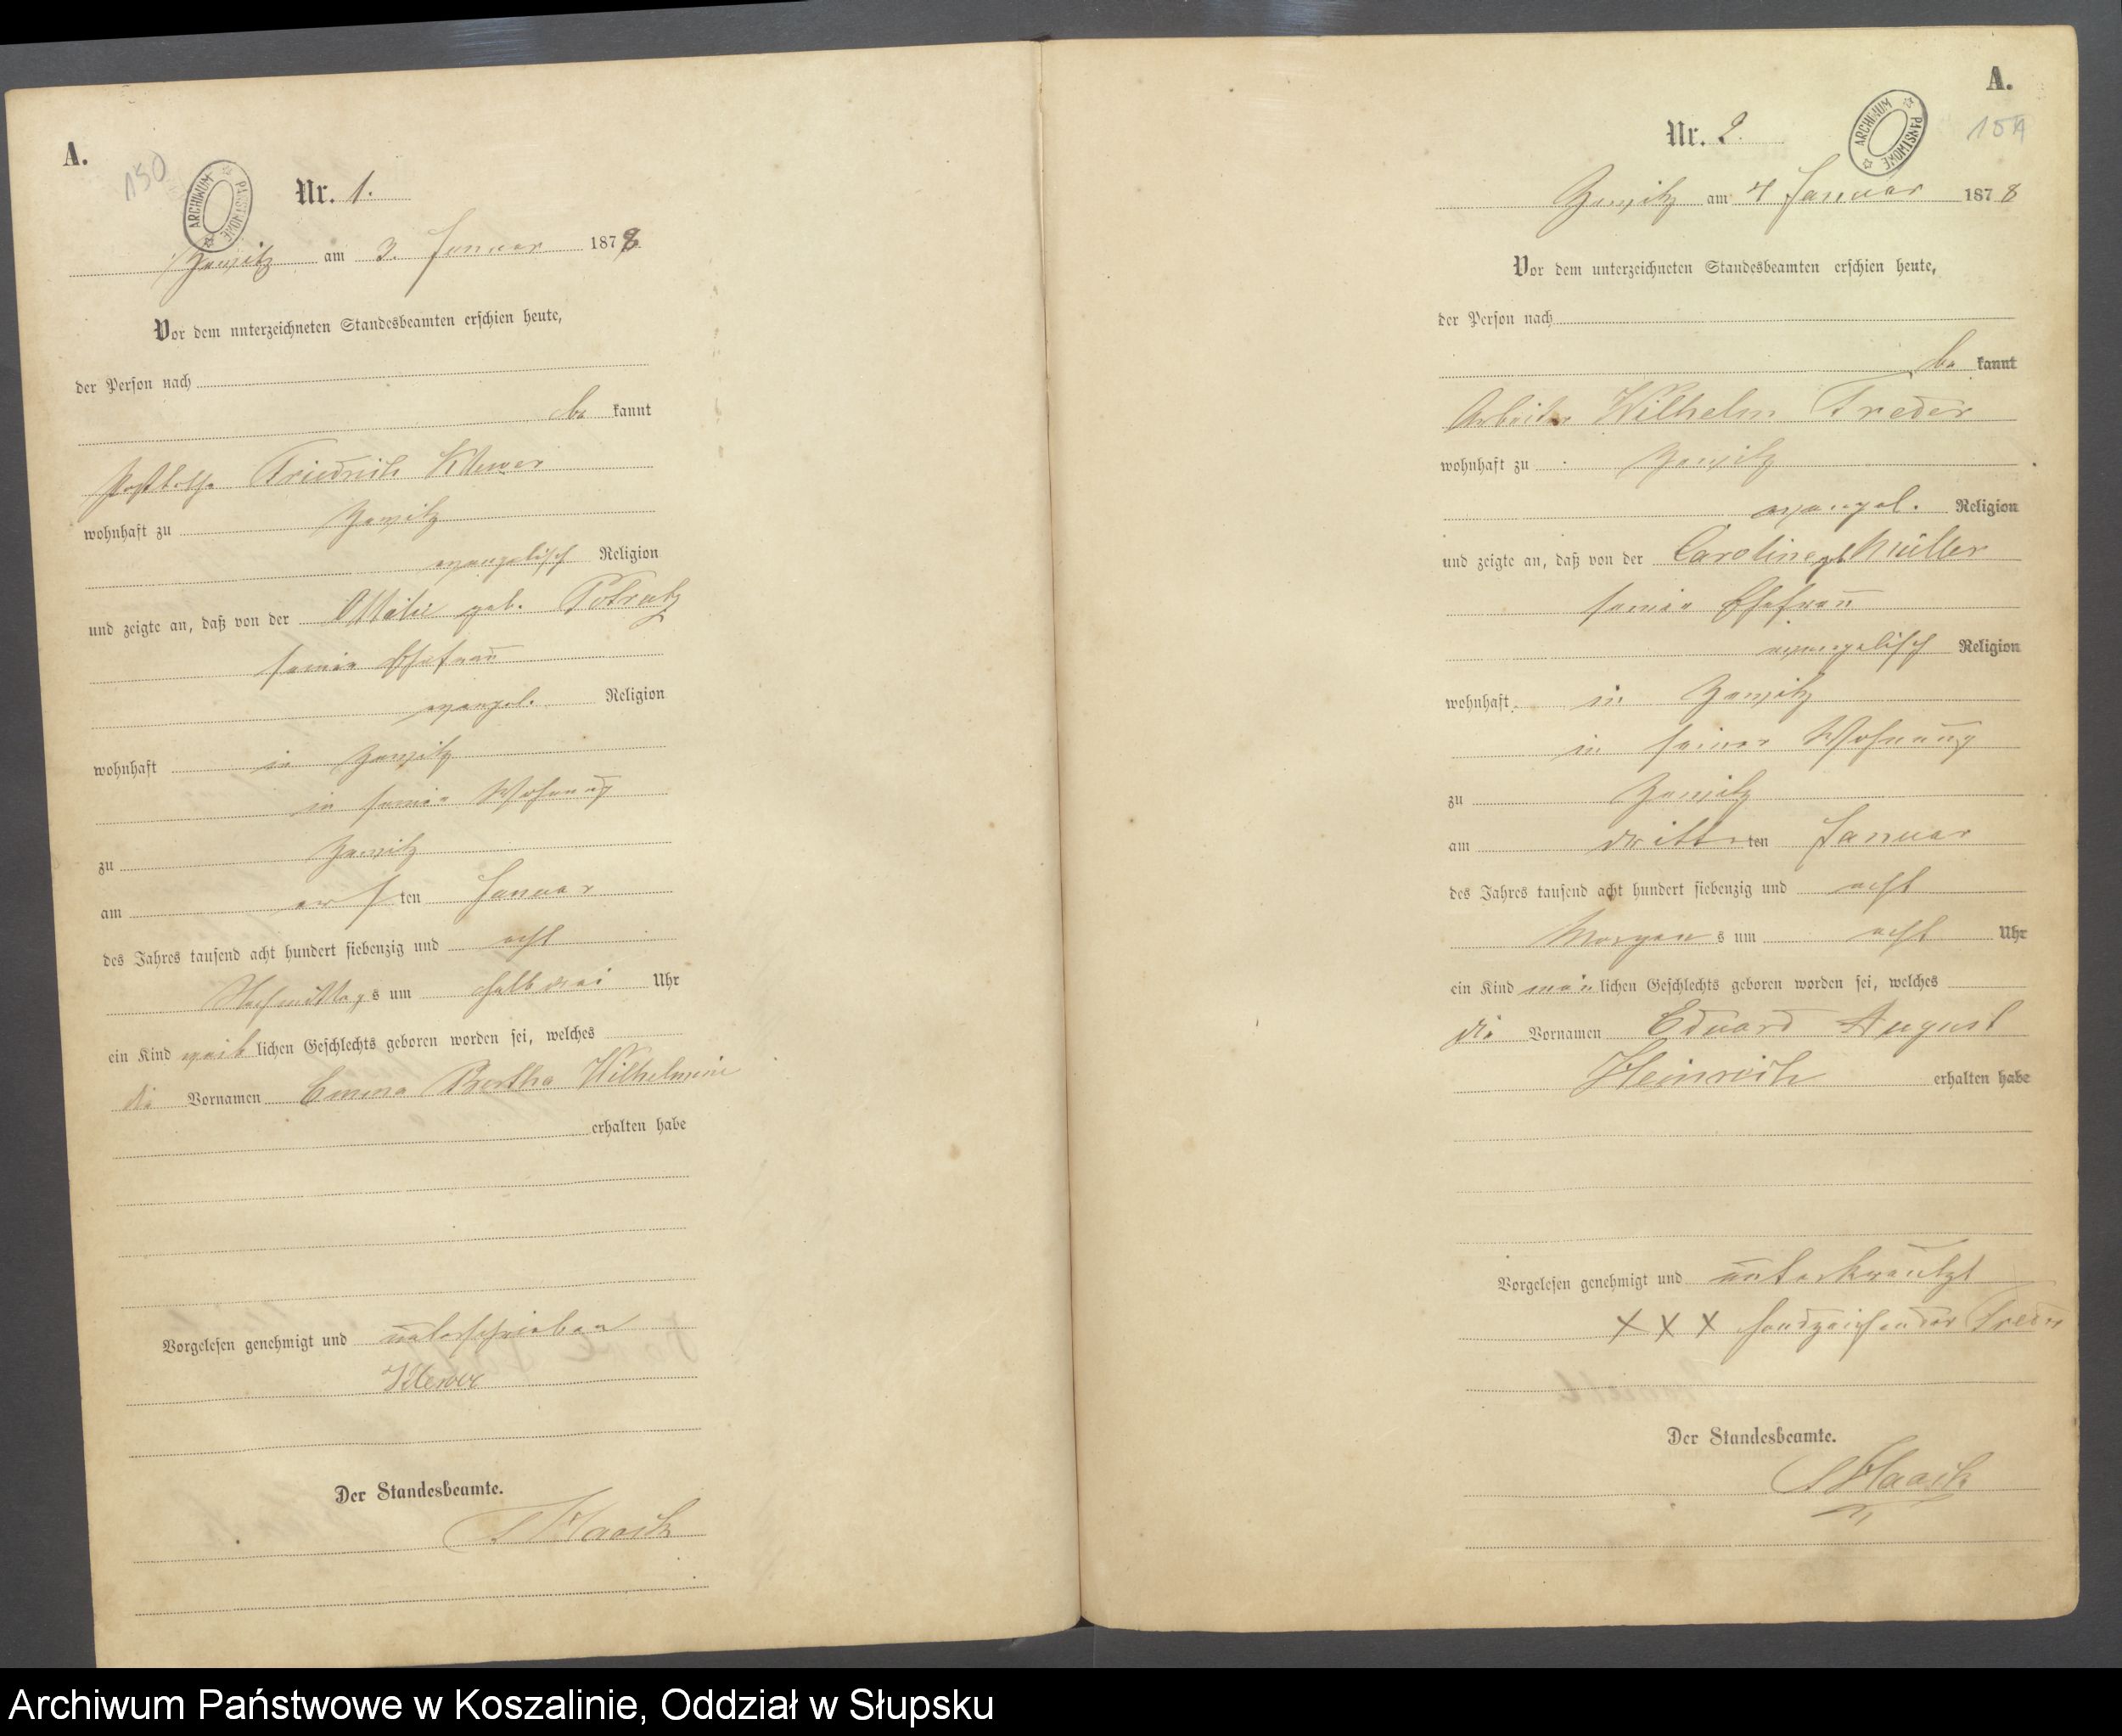 A.
150
ARCHIWUM PAŃSTWOWE
Nr. 1.
Zewitz am 3. Januar 1878
Vor dem unterzeichneten Standesbeamten erschien heute,
der Person nach
be kannt
Friedrich Klewer
wohnhaft zu Zewitz
evangelisch Religion
und zeigte an, daß von der Ottilie geb. Potratz
seiner Ehefrau
evangel. Religion
wohnhaft in Zewitz
in seiner Wohnung
zu Zewitz
am ersten Januar
des Jahres tausend acht hundert siebenzig und acht
Nachmittags um halb drei Uhr
ein Kind weiblichen Geschlechts geboren worden sei, welches
die Vornamen Emma Bertha Wilhelmine
erhalten habe
Vorgelesen genehmigt und unterschrieben
Klewer
Der Standesbeamte.
Haack
A.
ARCHIWUM PAŃSTWOWE
Nr. 2.
Zewitz am 4 Januar 1878
Vor dem unterzeichneten Standesbeamten erschien heute,
der Person nach
be kannt
Arbeiter Wilhelm Treder
wohnhaft zu Zewitz
evangel. Religion
und zeigte an, daß von der Caroline geb Müller
seiner Ehefrau
evangelisch Religion
wohnhaft in Zewitz
in seiner Wohnung
zu Zewitz
am dritten Januar
des Jahres tausend acht hundert siebenzig und acht
Morgens um acht Uhr
ein Kind mänlichen Geschlechts geboren worden sei, welches
die Vornamen Eduard August
Heinrich erhalten habe
Vorgelesen genehmigt und unterkreutzt
X X X Handzeichen der Treder
Der Standesbeamte.
Haack
Archiwum Państwowe w Koszalinie, Oddział w Słupsku